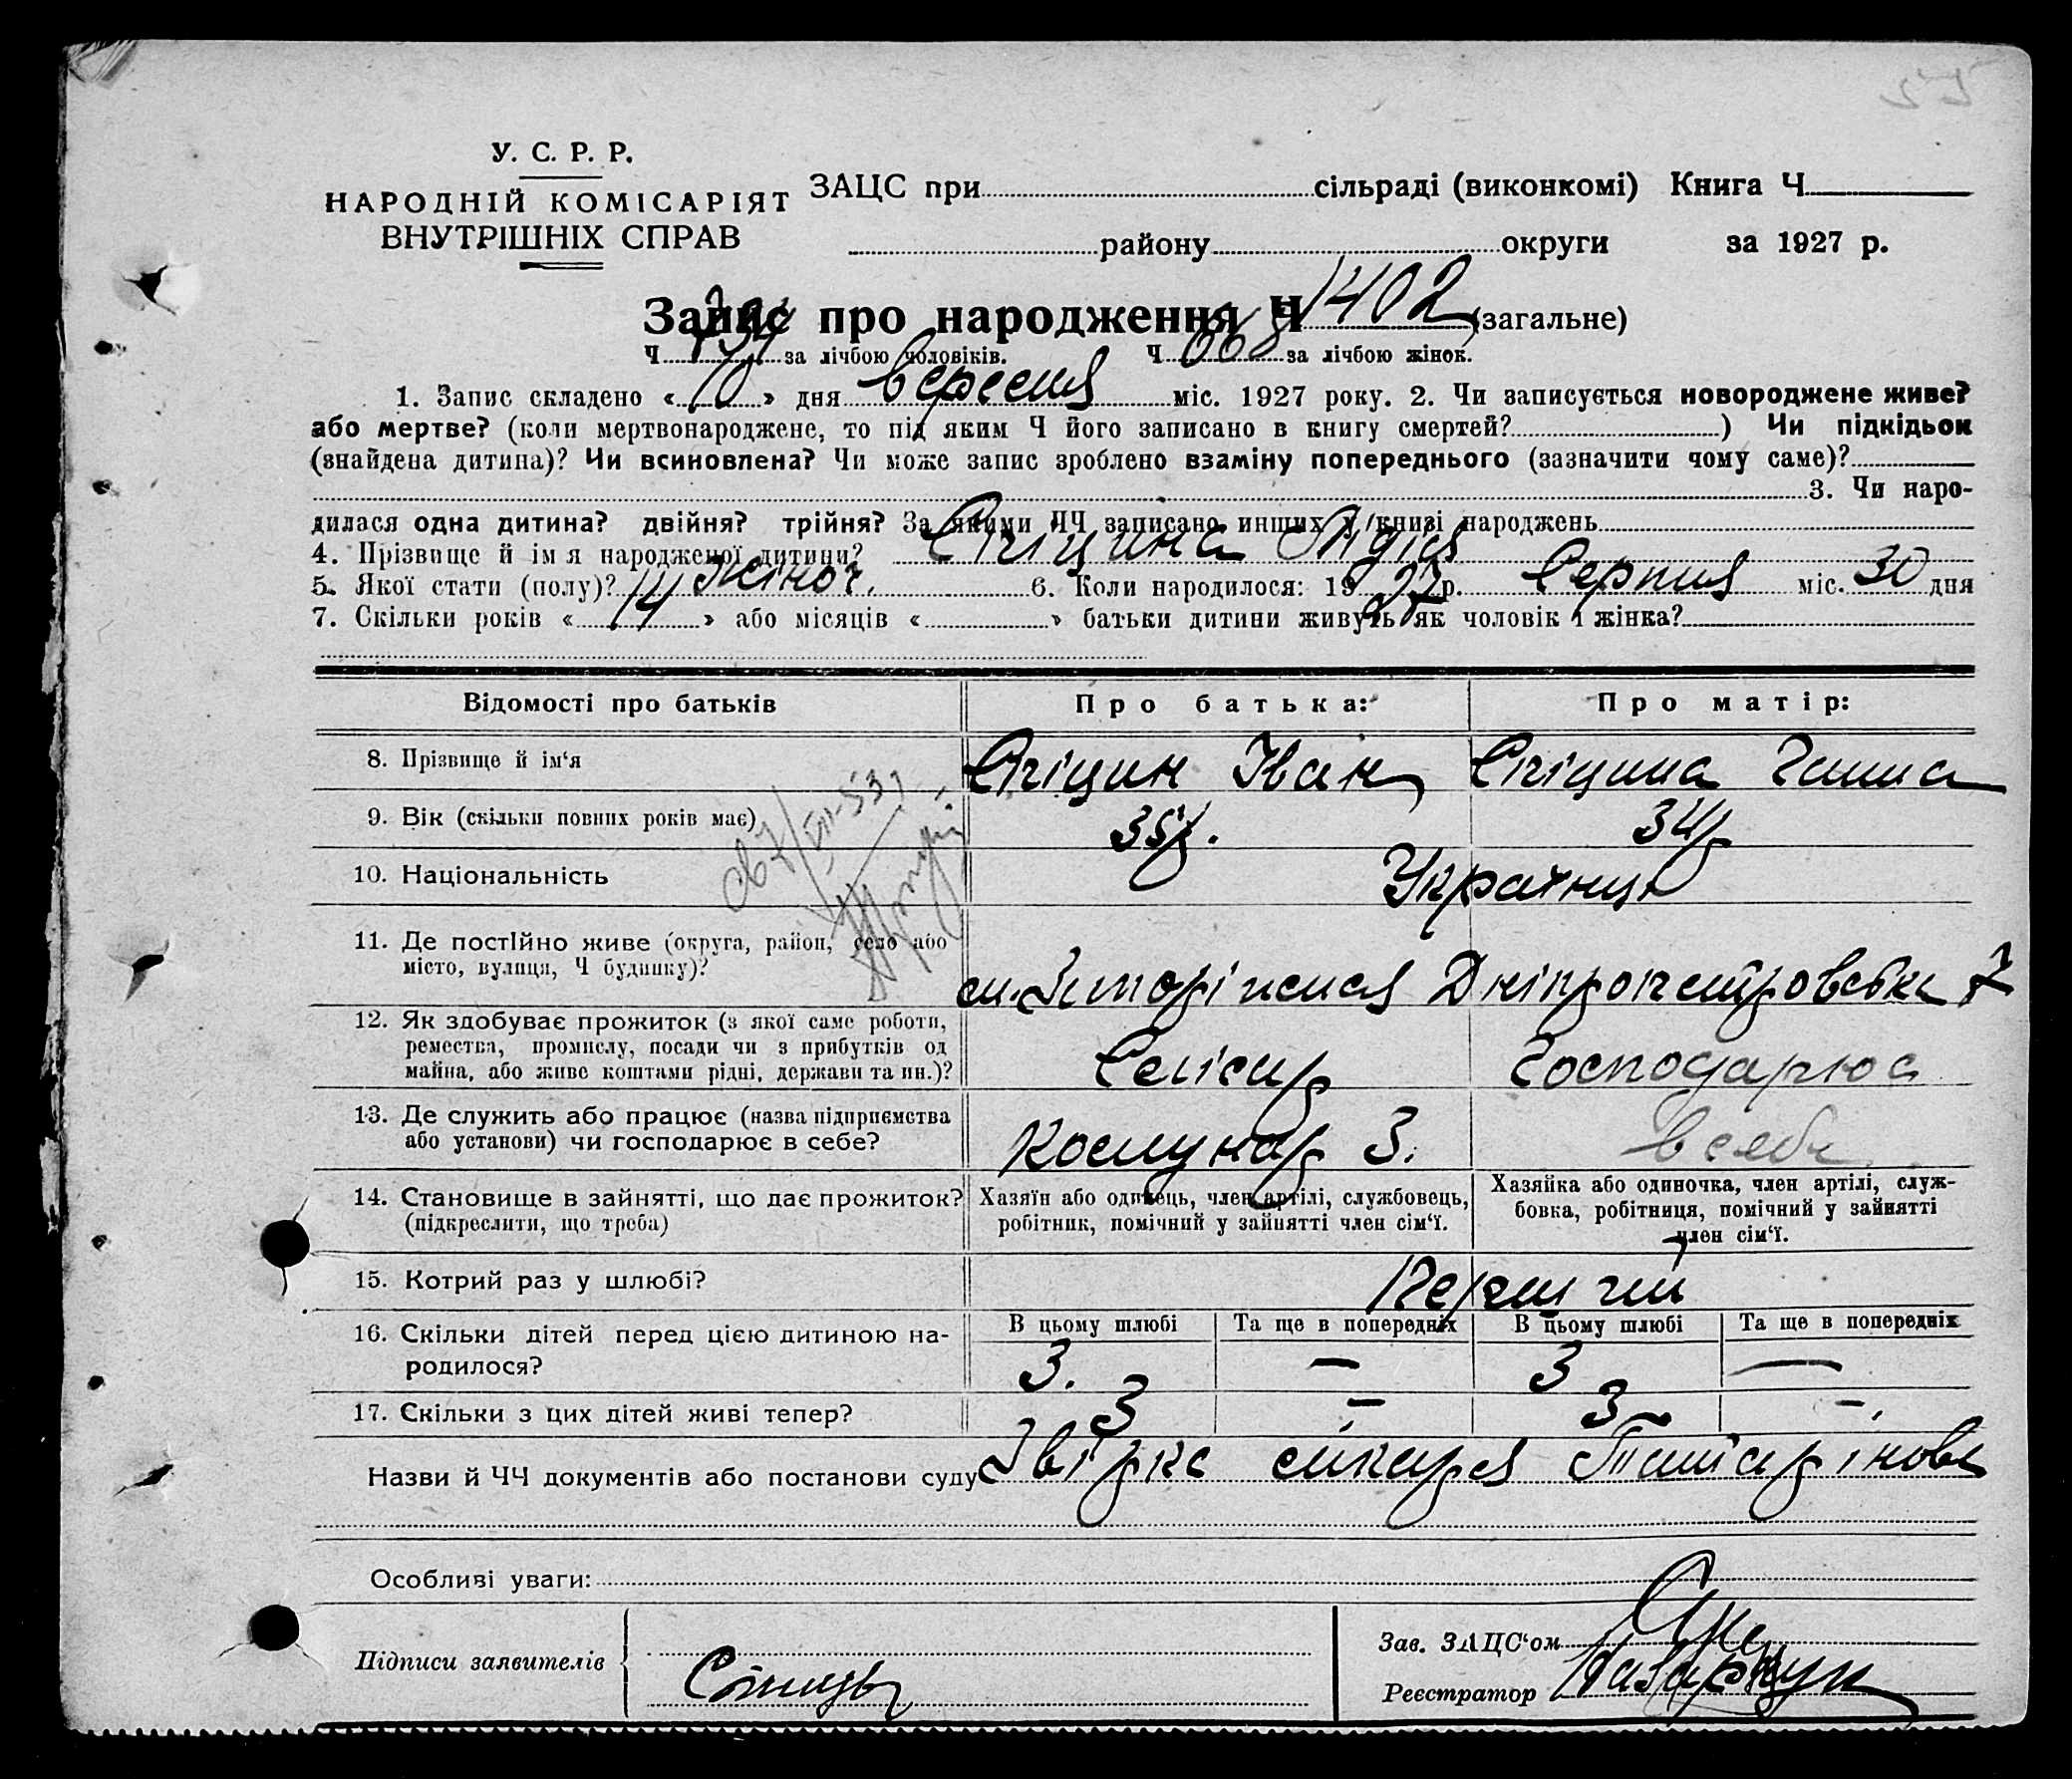 У. С. Р. Р.
НАРОДНІЙ КОМІСАРІЯТ
ВНУТРІШНІХ СПРАВ
ЗАЦС при сільраді (виконкомі) Книга Ч
району округи за 1927 р.
Запис про народження Ч 1402 (загальне)
Ч 734 за лічбою чоловіків. Ч 668 за лічбою жінок.
1. Запис складено «10» дня вересня міс. 1927 року. 2. Чи записується новороджене живе?
або мертве? (коли мертвонароджене, то під яким Ч його записано в книгу смертей? ) Чи підкідьок
(знайдена дитина)? Чи всиновлена? Чи може запис зроблено взаміну попереднього (зазначити чому саме)?
3. Чи наро-
дилася одна дитина? двійня? трійня? За якими ЧЧ записано инших у книзі народжень
4. Прізвище й ім я народженої дитини? Спіцина Лідія
5. Якої стати (полу)? жіноч. 6. Коли народилося: 1927 р. Серпня міс. 30 дня
7. Скільки років «14» або місяців « » батьки дитини живуть як чоловік і жінка?
Відомості про батьків Про батька: Про матір:
8. Прізвище й ім‘я Спіцин Іван Спіцина Ганна
9. Вік (скільки повних років має) 35 р. 34 р
10. Національність Українці
11. Де постійно живе (округа, район, село або
місто, вулиця, Ч будинку)? Дніпропетровська 7
12. Як здобуває прожиток (з якої саме роботи,
ремества, промислу, посади чи з прибутків од
майна, або живе коштами рідні, держави та ин.)? Слюсар Господарює
13. Де служить або працює (назва підприємства
або установи) чи господарює в себе? Комунар З. в себе
14. Становище в зайнятті, що дає прожиток?
(підкреслити, що треба)
Хазяїн або одинець, член артілі, службовець,
робітник, помічний у зайнятті член сім‘ї.
Хазяйка або одиночка, член артілі, служ-
бовка, робітниця, помічний у зайнятті
член сім‘ї.
15. Котрий раз у шлюбі? Перший
16. Скільки дітей перед цією дитиною на-
родилося?
В цьому шлюбі Та ще в попередніх В цьому шлюбі Та ще в попередніх
3. — 3 —
17. Скільки з цих дітей живі тепер? 3 — 3 —
Назви й ЧЧ документів або постанови суду
Особливі уваги:
Підписи заявителів
Зав. ЗАЦС‘ом
Реєстратор